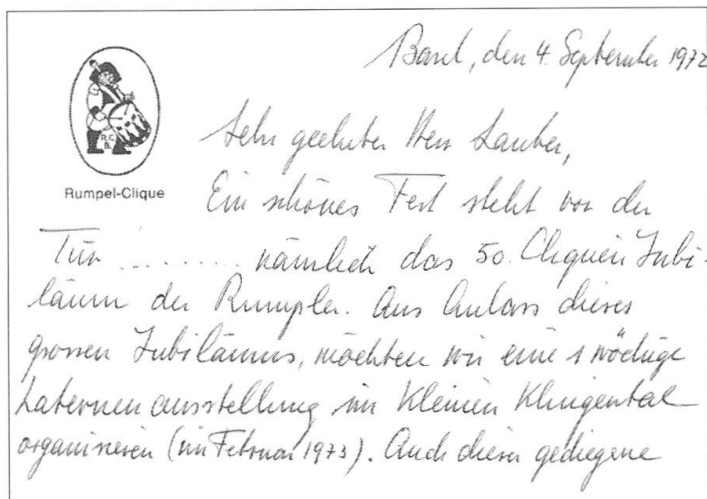 Basel, den 4. September 1972
R.C.
B.
Rumpel-Clique
Sehr geehrter Herr Lauber,
Ein schönes Fest steht vor der
Tür ......... nämlich das 50. Cliquen Jubi-
läum der Rumpler. Aus Anlass dieses
grossen Jubiläums, möchten wir eine 1 wöchige
Laternenausstellung im Kleinen Klingental
organisieren (im Februar 1973). Auch dieser gediegene